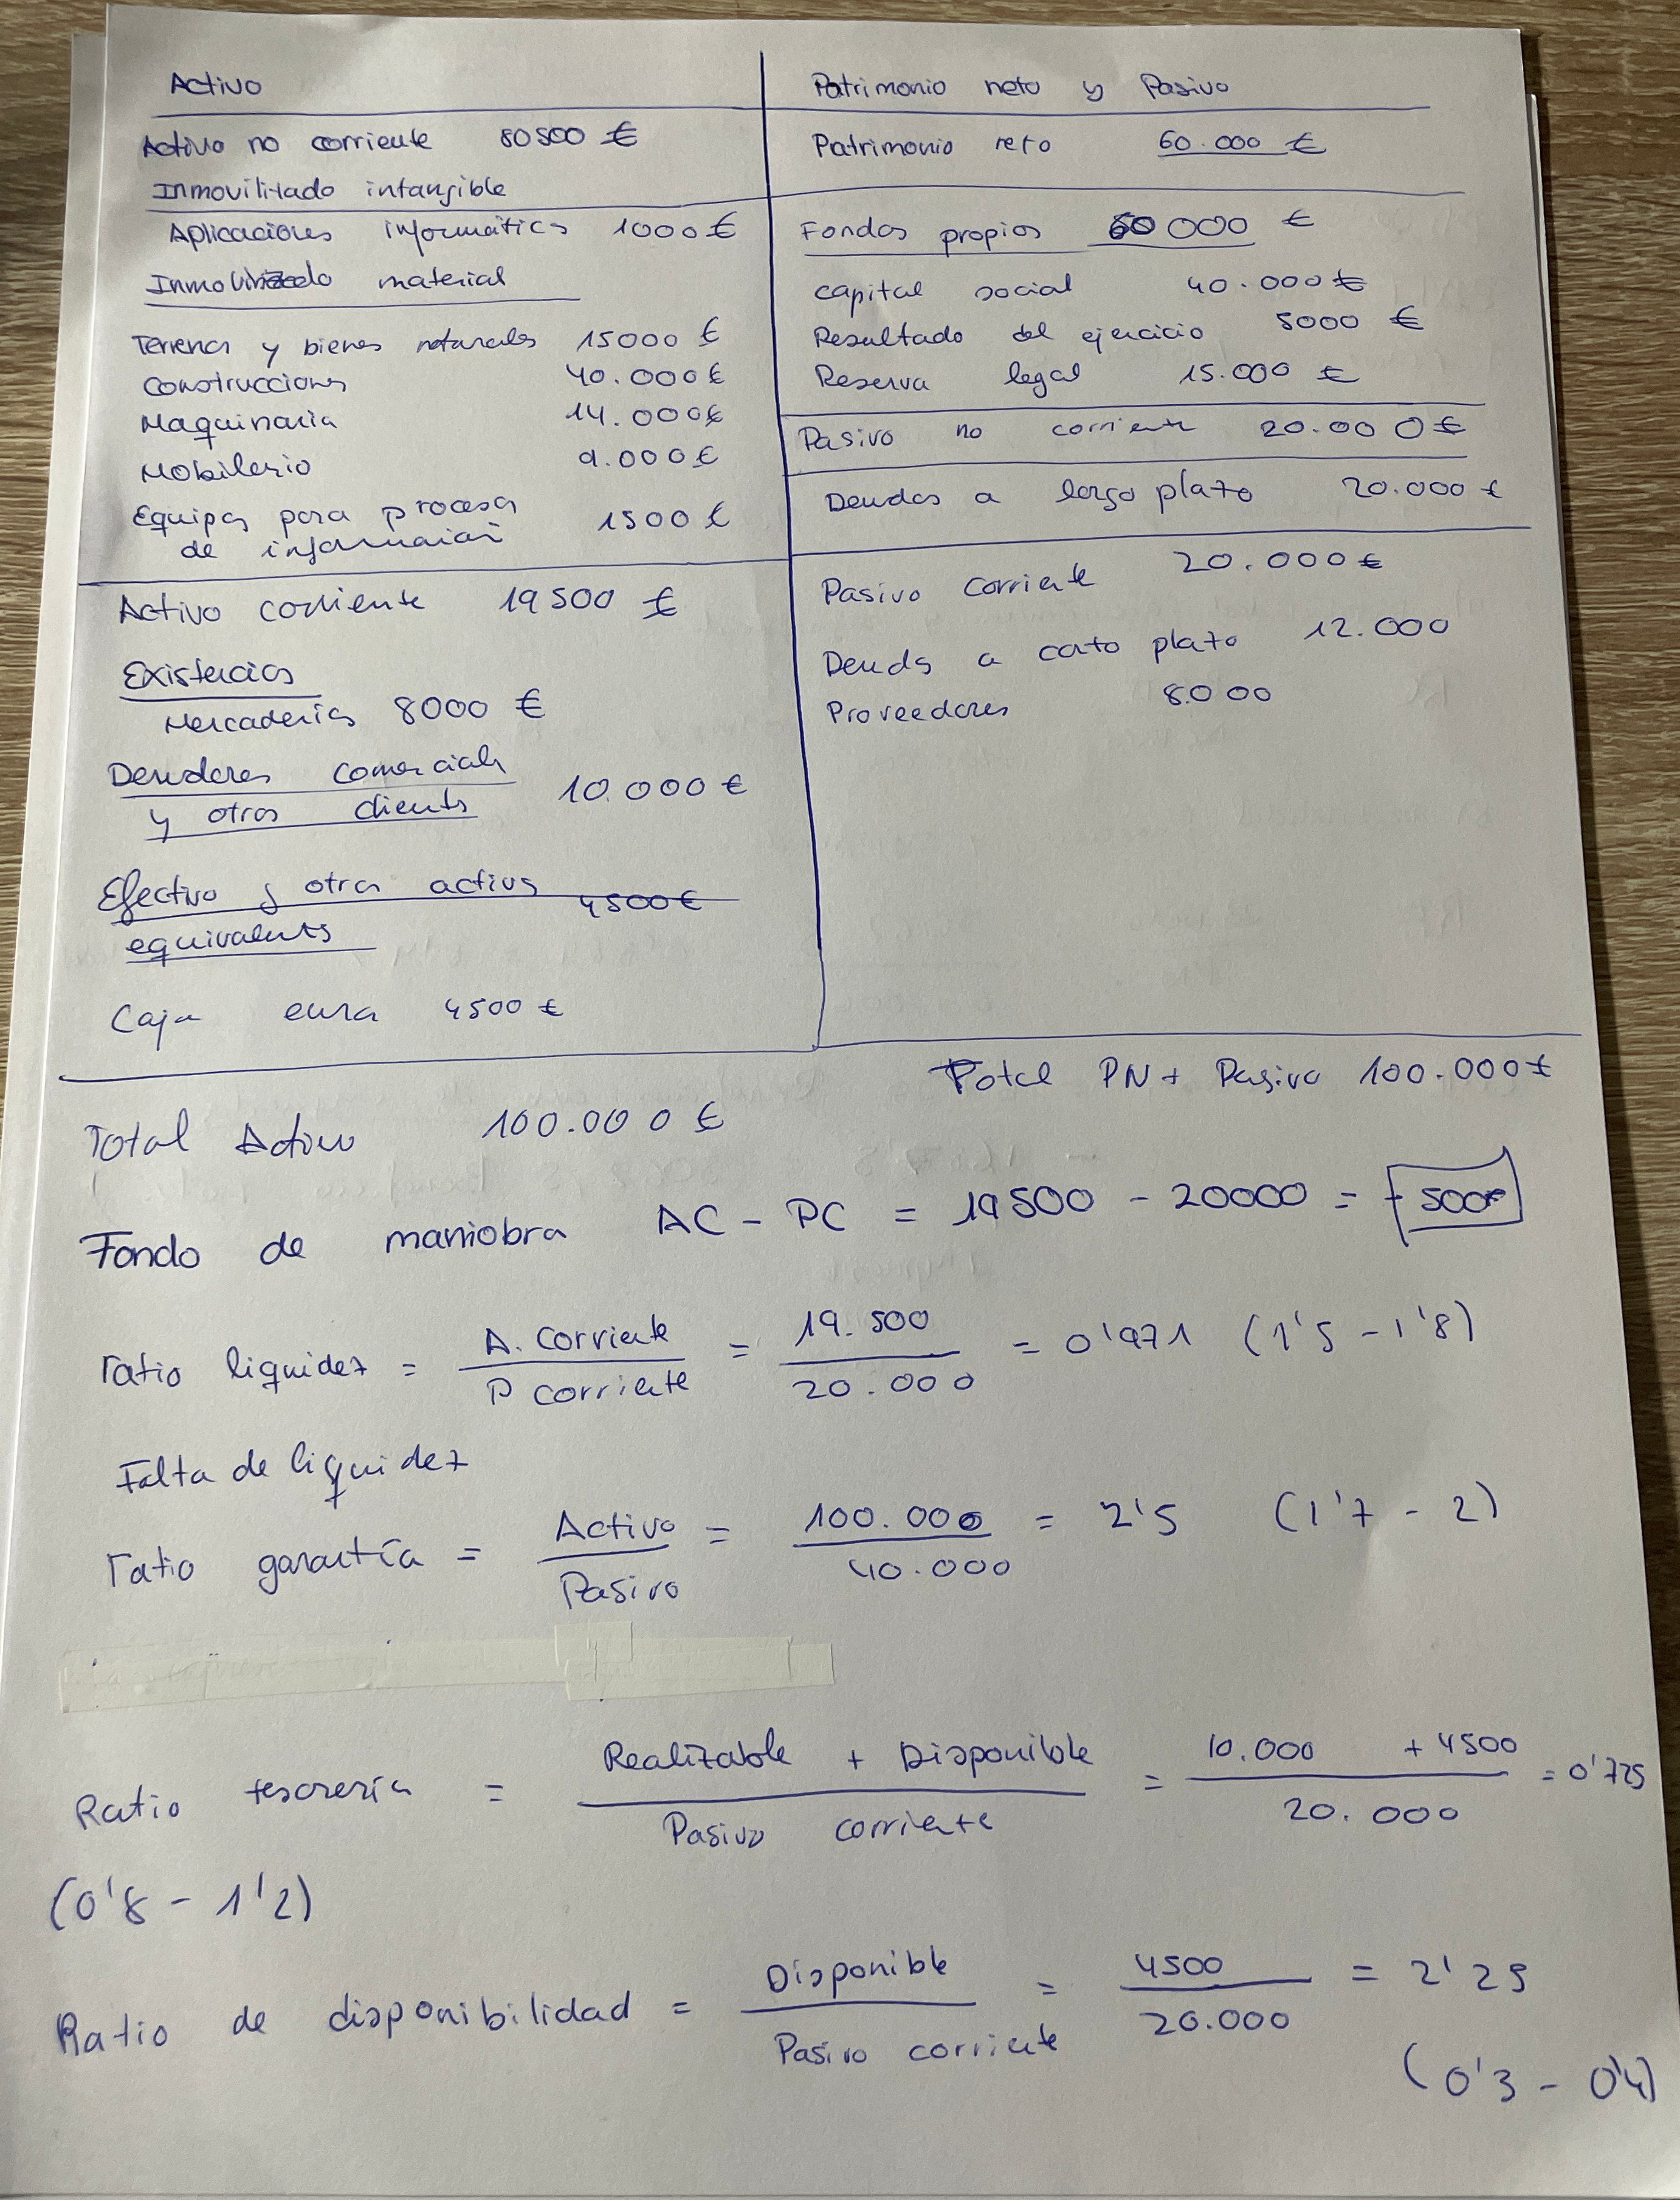 Activo
Activo no corriente 80500 €
Inmovilizado intangible
Aplicaciones informátics 1000 €
Inmovilizado material
Terrenos y bienes naturales 15000 €
Construcciones 40.000€
Maquinaria 14.000€
Mobilario 9.000€
Equipos para procesos 1500 €
de información
Activo corriente 19500 €
Existencias
Mercaderías 8000 €
Deudores comercials
y otros clients 10.000 €
Efectivo y otros activos 4500€
equivalents
Caja euros 4500 €
Total Activo 100.000 €
Patrimonio neto y Pasivo
Patrimonio neto 60.000 €
Fondos propios 60 000 €
capital social 40.000 €
Resultado del ejercicio 5000 €
Reserva legal 15.000 €
Pasivo no corriente 20.000€
Deudas a largo plazo 20.000 €
Pasivo corriente 20.000€
Deuds a corto plazo 12.000
Proveedores 8.000
Total PN + Pasivo 100.000€
Fondo de maniobra AC - PC = 19500 - 20000 = -500€
ratio liquidez = A. corriente / P corriente = 19.500 / 20.000 = 0'971 (1'5 - 1'8)
Falta de liquidez
ratio garantía = Activo / Pasivo = 100.000 / 40.000 = 2'5 (1'7 - 2)
Ratio tesorería = Realizable + Disponible / Pasivo corriente = 10.000 + 4500 / 20.000 = 0'725
(0'8 - 1'2)
Ratio de disponibilidad = Disponible / Pasivo corriente = 4500 / 20.000 = 2'25
(0'3 - 0'4)